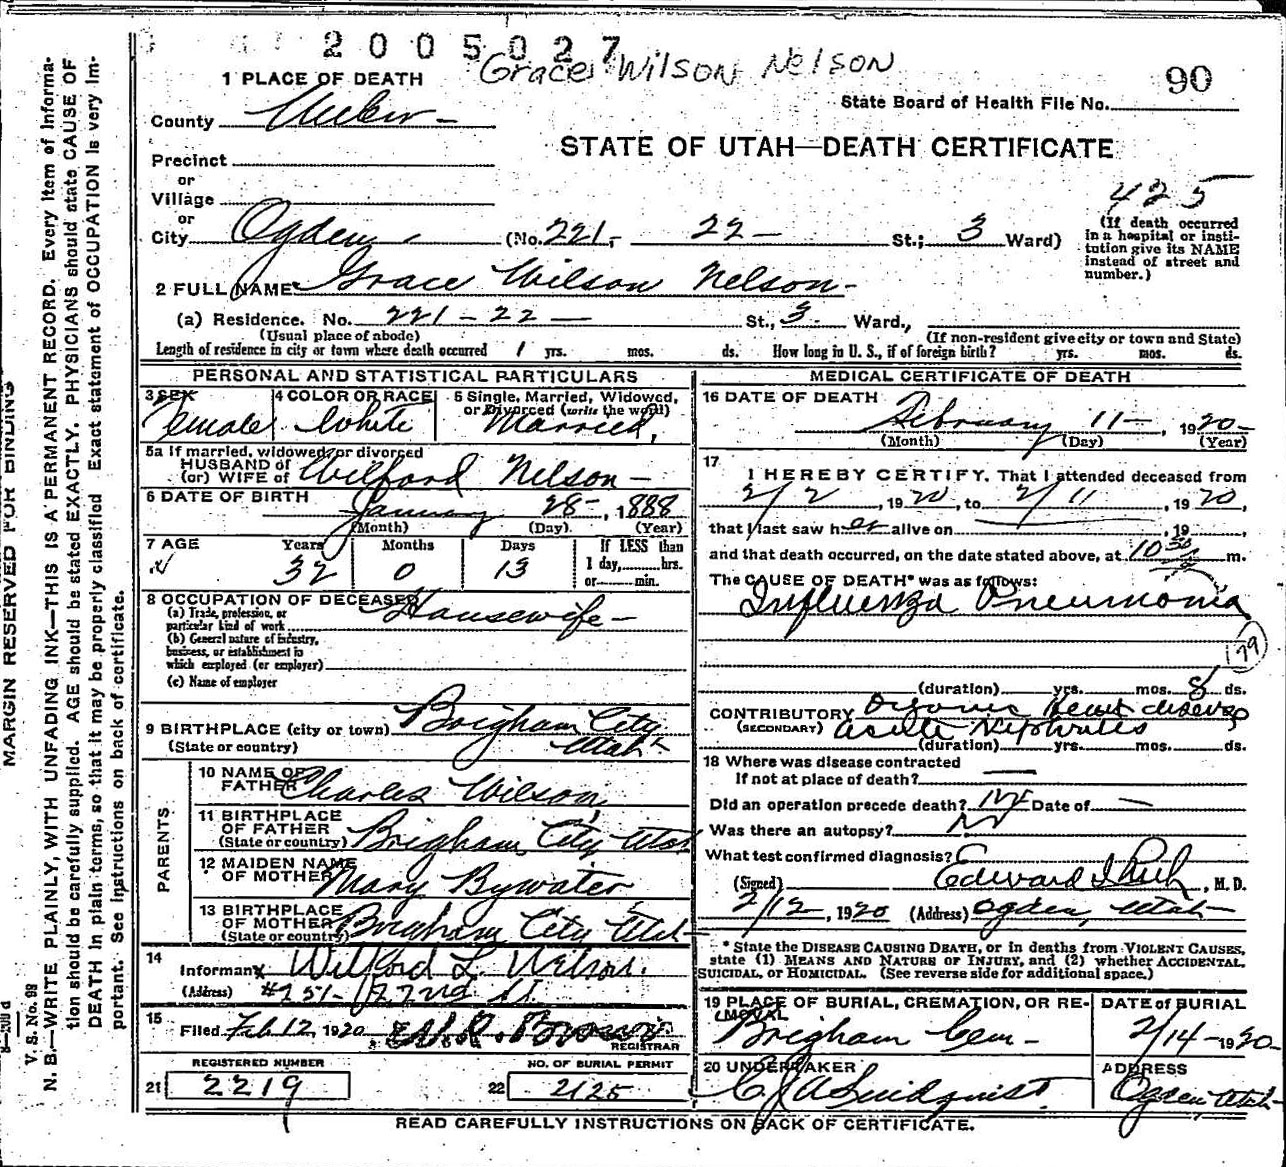 2005027
Grace Wilson Nelson
90
1 PLACE OF DEATH
State Board of Health File No.
County Weber
STATE OF UTAH—DEATH CERTIFICATE
Precinct
or
Village
or
City Ogden (No. 221, 22 St.; 3 Ward)
425
(If death occurred
in a hospital or insti-
tution give its NAME
instead of street and
number.)
2 FULL NAME Grace Wilson Nelson
(a) Residence. No. 221-22 St., 3 Ward.,
(Usual place of abode)
(If non-resident give city or town and State)
Length of residence in city or town where death occurred 1 yrs. mos. ds. How long in U. S., if of foreign birth? yrs. mos. ds.
PERSONAL AND STATISTICAL PARTICULARS
3 SEX Female
4 COLOR OR RACE White
5 Single, Married, Widowed,
or Divorced (write the word)
Married,
5a If married, widowed, or divorced
HUSBAND of
(or) WIFE of Wilford Nelson
6 DATE OF BIRTH
January 28, 1888
(Month) (Day) (Year)
7 AGE Years Months Days If LESS than
1 day,......hrs.
or......min.
32 0 13
8 OCCUPATION OF DECEASED
(a) Trade, profession, or
particular kind of work Housewife
(b) General nature of industry,
business, or establishment in
which employed (or employer)
(c) Name of employer
9 BIRTHPLACE (city or town) Brigham City
(State or country) Utah
PARENTS
10 NAME OF
FATHER Charles Wilson,
11 BIRTHPLACE
OF FATHER
(State or country) Brigham City Utah
12 MAIDEN NAME
OF MOTHER Mary Bywater
13 BIRTHPLACE
OF MOTHER
(State or country) Brigham City Utah
14
Informant Wilford L. Wilson.
(Address) #251-22nd St.
15
Filed Feb 12, 1920
REGISTRAR
REGISTERED NUMBER
21 2219
NO. OF BURIAL PERMIT
22 2125
MEDICAL CERTIFICATE OF DEATH
16 DATE OF DEATH
February 11, 1920
(Month) (Day) (Year)
17
I HEREBY CERTIFY, That I attended deceased from
2/2, 1920, to 2/11, 1920,
that I last saw her alive on , 19 ,
and that death occurred, on the date stated above, at 10 30 m.
The CAUSE OF DEATH* was as follows:
Influenza Pneumonia
179
(duration) yrs. mos. 8 ds.
CONTRIBUTORY Organic Heart disease
(SECONDARY) acute Nephritis
(duration) yrs. mos. ds.
18 Where was disease contracted
If not at place of death?
Did an operation precede death? Date of
Was there an autopsy?
What test confirmed diagnosis?
(Signed) Edward I Rich, M. D.
2/12, 1920 (Address) Ogden, Utah
* State the DISEASE CAUSING DEATH, or in deaths from VIOLENT CAUSES,
state (1) MEANS AND NATURE OF INJURY, and (2) whether ACCIDENTAL,
SUICIDAL, or HOMICIDAL. (See reverse side for additional space.)
19 PLACE OF BURIAL, CREMATION, OR RE-
MOVAL
Brigham Cem
DATE of BURIAL
2/14 1920
20 UNDERTAKER
Lindquist
ADDRESS
Ogden Utah
READ CAREFULLY INSTRUCTIONS ON BACK OF CERTIFICATE.
MARGIN RESERVED FOR BINDING
V. S. No. 98
N. B.—WRITE PLAINLY, WITH UNFADING INK—THIS IS A PERMANENT RECORD. Every item of informa-
tion should be carefully supplied. AGE should be stated EXACTLY. PHYSICIANS should state CAUSE OF
DEATH in plain terms, so that it may be properly classified. Exact statement of OCCUPATION is very im-
portant. See instructions on back of certificate.